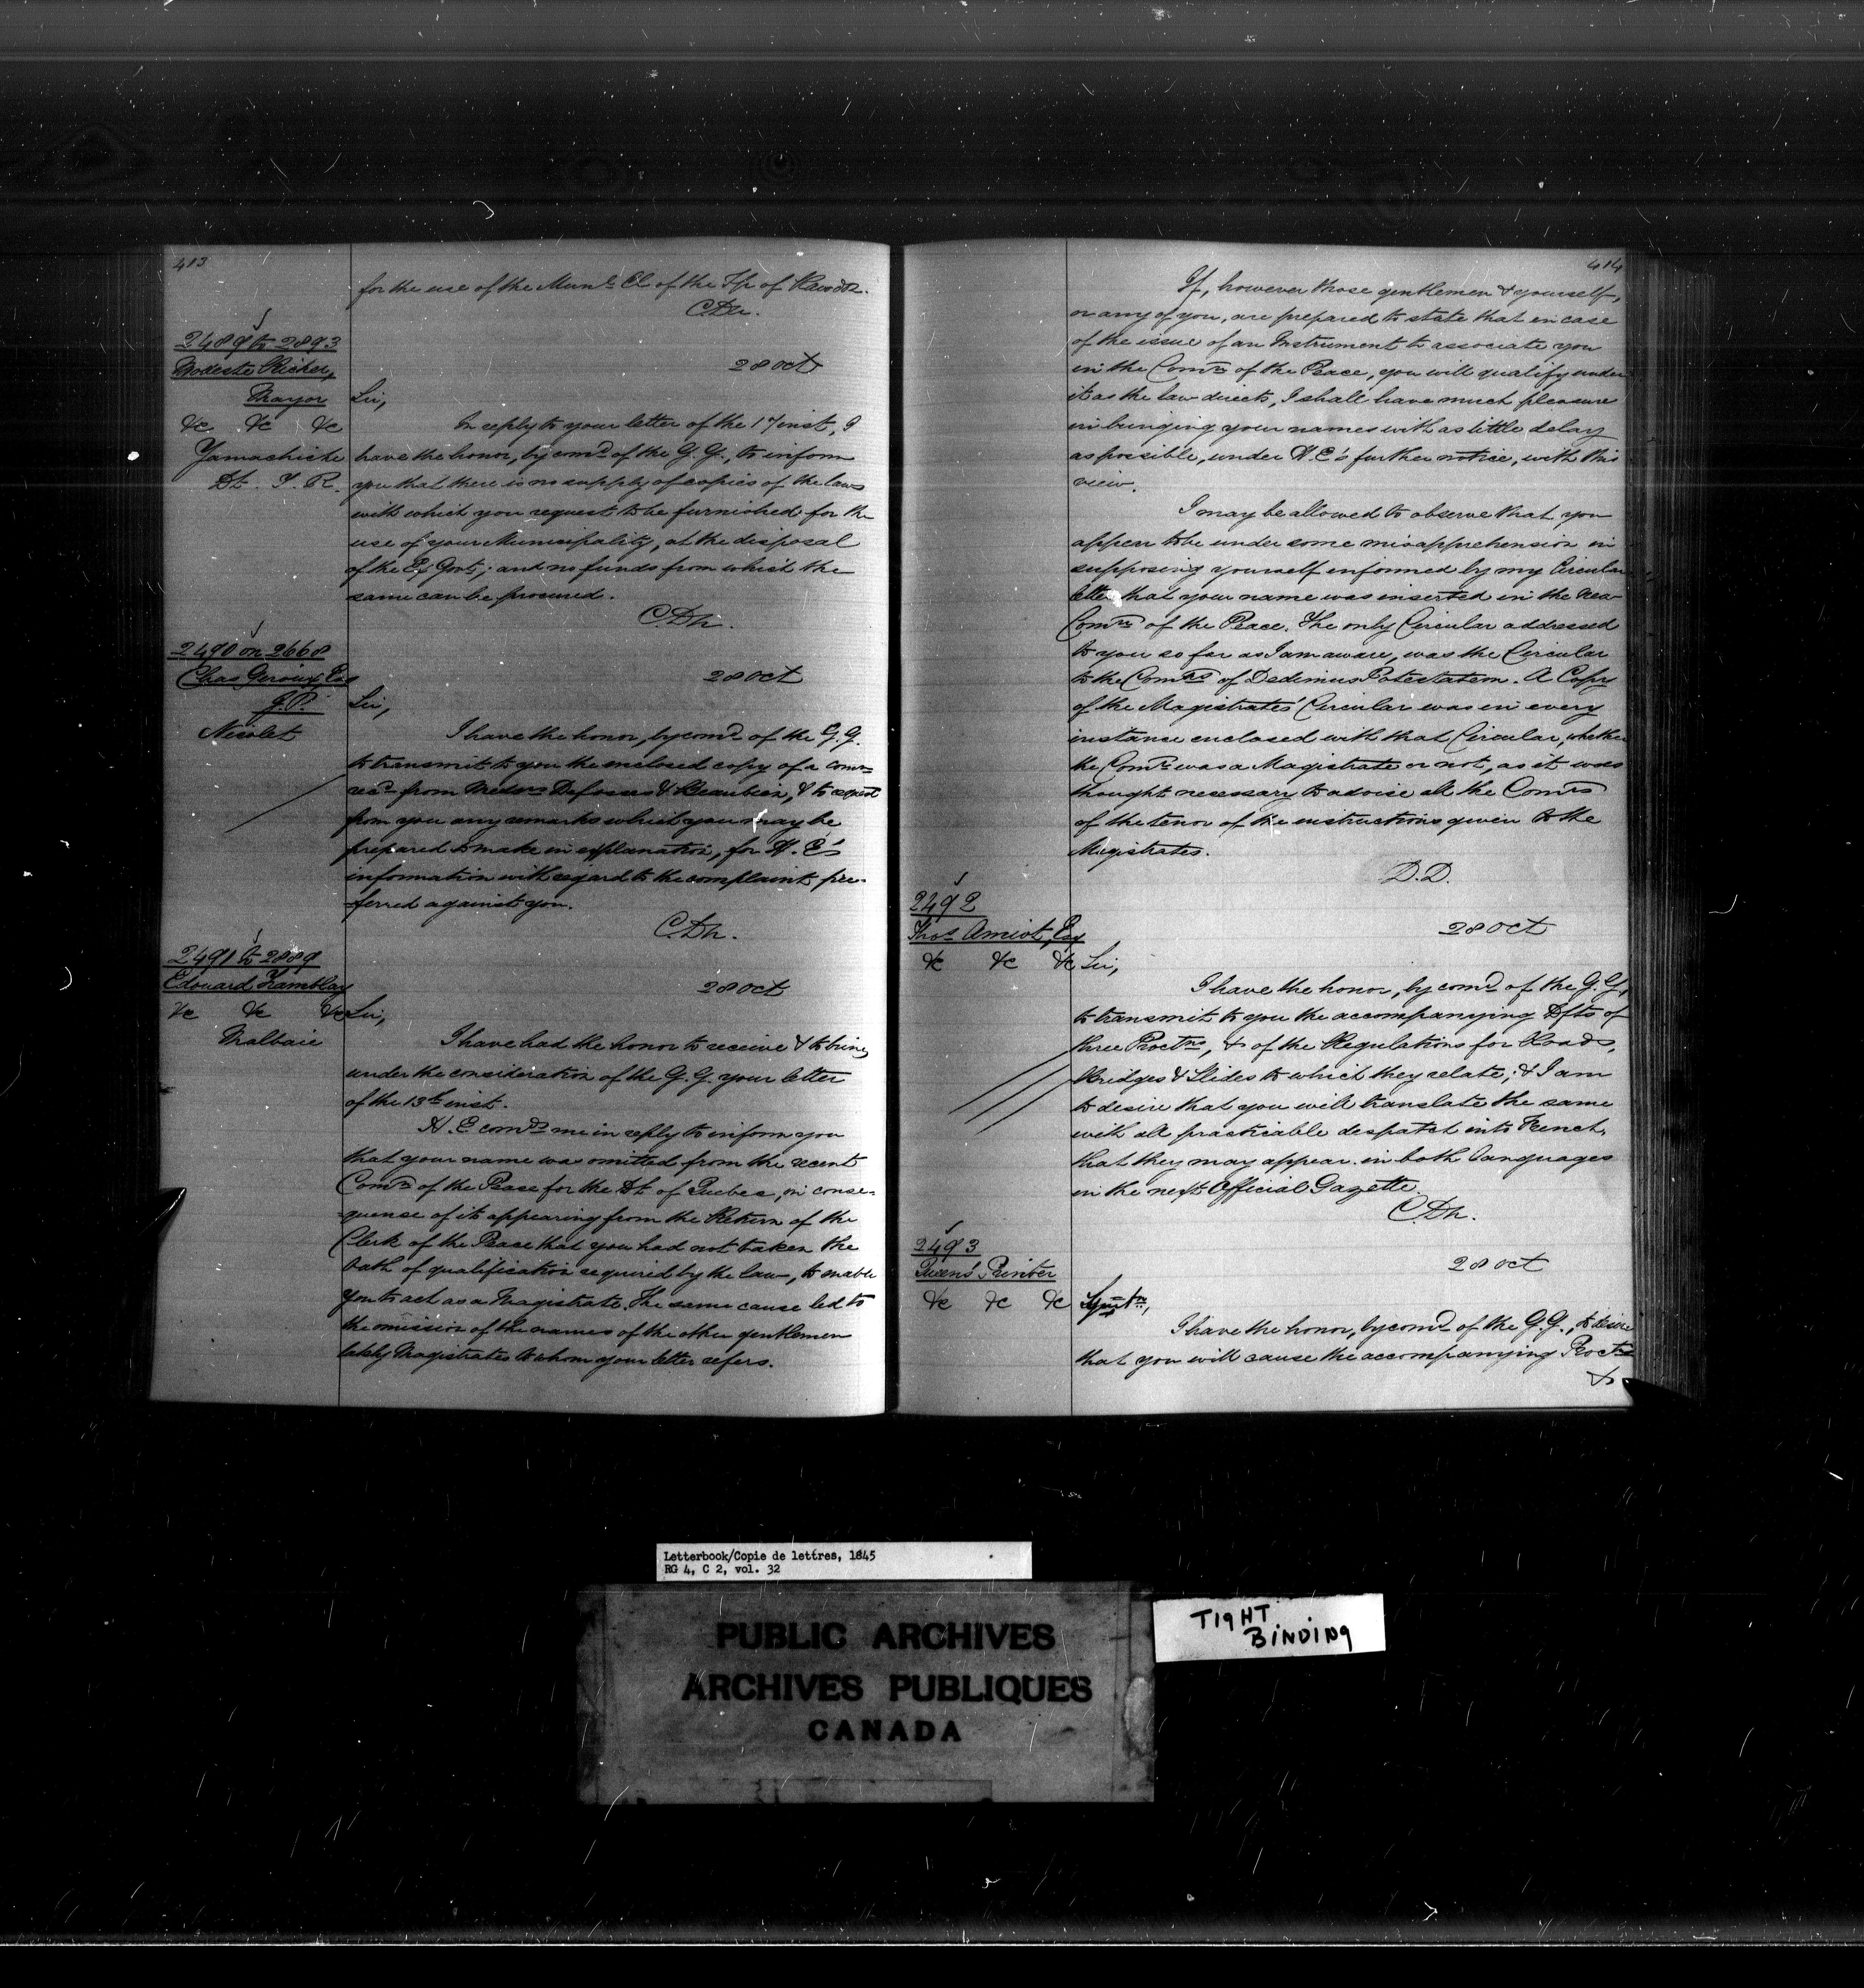 413
for the use of the Munl Cl of the Tp of Rawdon.
C.Dn.
2489 to 2893
Modeste Richer,
Mayor
&c &c &c
Yamachiche
Dt. T. R.
28 Oct
Sir,
In reply to your letter of the 17 inst, I
have the honor, by comd of the G.G., to inform
you that there is no supply of copies of the laws
with which you request to be furnished for the
use of your Municipality, at the disposal
of the Ex Govt; and no funds from which the
same can be procured.
C.Dn.
2490 on 2668
Chas Giroux Esq
J.P.
Nicolet
28 Oct
Sir,
I have the honor, by comd of the G.G.
to transmit to you the enclosed copy of a comn
recd from Messrs Defosses & Beaubien, & to request
from you any remarks which you may be
prepared to make in explanation, for H.E's
information with regard to the complaint pre-
-ferred against you.
C.Dn.
2491 to 2889
Edouard Tremblay
&c &c &c
Malbaie
28 Oct
Sir,
I have had the honor to receive & to bring
under the consideration of the G.G. your letter
of the 13th inst.
H.E comds me in reply to inform you
that your name was omitted from the recent
Comn of the Peace for the Dt. of Quebec, in conse-
-quence of its appearing from the Return of the
Clerk of the Peace that you had not taken the
Oath of qualification required by the law, to enable
you to act as a Magistrate. The same cause led to
the omission of the names of the other gentlemen
lately Magistrates to whom your letter refers.
414
If, however those gentlemen & yourself,
or any of you, are prepared to state that in case
of the issue of an Instrument to associate you
in the Comn of the Peace, you will qualify under
it as the law directs, I shall have much pleasure
in bringing your names with as little delay
as possible, under H.E's further notice, with this
view.
I may be allowed to observe that you
appear to be under some misapprehension in
supposing yourself informed by my Circular
letter that your name was inserted in the new
Comn of the Peace. The only Circular addressed
to you so far as I am aware, was the Circular
to the Comrs of Dedimus Potestatem. A Copy
of the Magistrates' Circular was in every
instance enclosed with that Circular, whether
the Comr was a Magistrate or not, as it was
thought necessary to advise all the Comrs
of the tenor of the instructions given to the
Magistrates.
D.D.
2492
Thos Amiot, Esq
&c &c &c
28 Oct
Sir,
I have the honor, by comd of the G.G.,
to transmit to you the accompanying Dfts of
three Proctns, & of the Regulations for Roads,
Bridges & Slides to which they relate; & I am
to desire that you will translate the same
with all practicable despatch into French,
that they may appear in both languages
in the next Official Gazette.
C.Dn.
2493
Queen's Printer
&c &c &c
28 Oct
I have the honor, by comd of the G.G., to desire
that you will cause the accompanying Proctns
&
Letterbook/Copie de lettres, 1845
RG 4, C 2, vol. 32
PUBLIC ARCHIVES
ARCHIVES PUBLIQUES
CANADA
TIGHT
BINDING